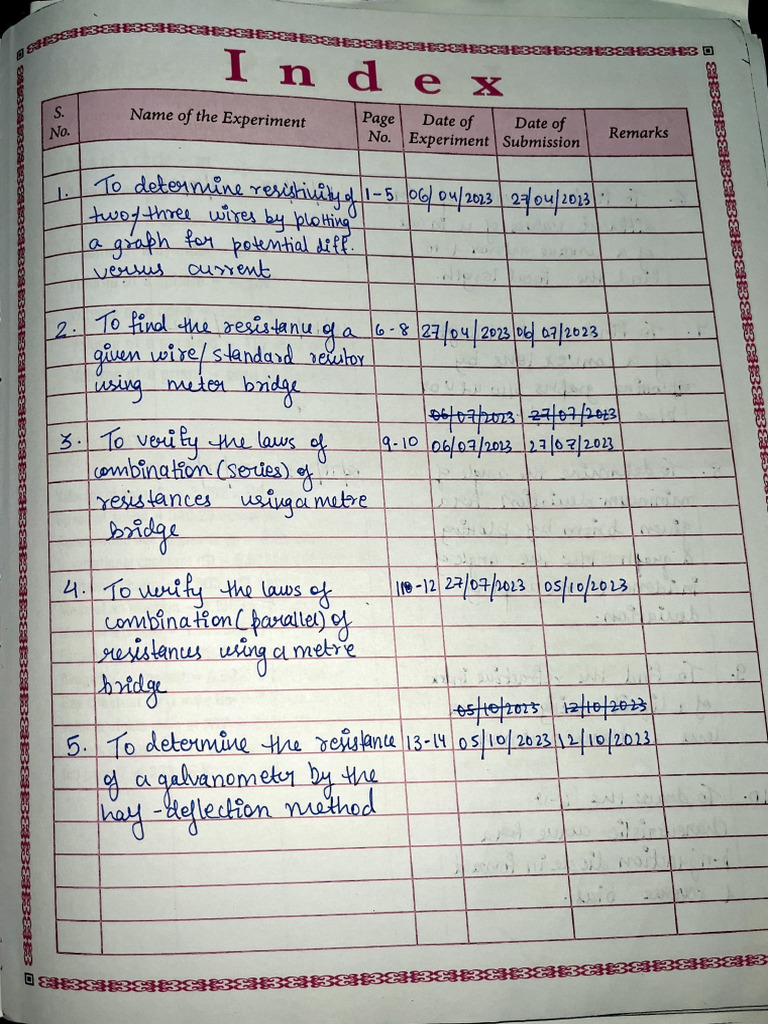 Index
S. No. Name of the Experiment Page No. Date of Experiment Date of Submission Remarks
1. To determine resistivity of 1-5 06/04/2023 27/04/2023
two/three wires by plotting
a graph for potential diff.
versus current
2. To find the resistance of a 6-8 27/04/2023 06/07/2023
given wire/standard resistor
using meter bridge
06/07/2023 27/07/2023
3. To verify the laws of 9-10 06/07/2023 27/07/2023
combination (series) of
resistances using a metre
bridge
4. To verify the laws of 11-12 27/07/2023 05/10/2023
combination (parallel) of
resistances using a metre
bridge
05/10/2023 12/10/2023
5. To determine the resistance 13-14 05/10/2023 12/10/2023
of a galvanometer by the
hay-deflection method